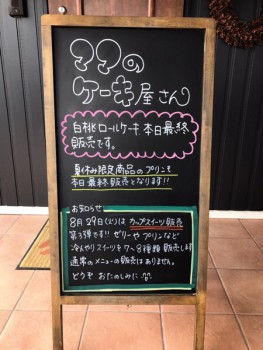 ママの
ケーキ屋さん
白桃ロールケーキ 本日最終
販売です。
夏休み限定商品のプリンも
本日最終販売となります!!
お知らせ
8月29日(火)は カップスイーツ販売
第3弾です!! ゼリーやプリンなど
冷んやりスイーツを7〜8種類 販売します
通常のメニューの販売はありません。
どうぞ おたのしみに